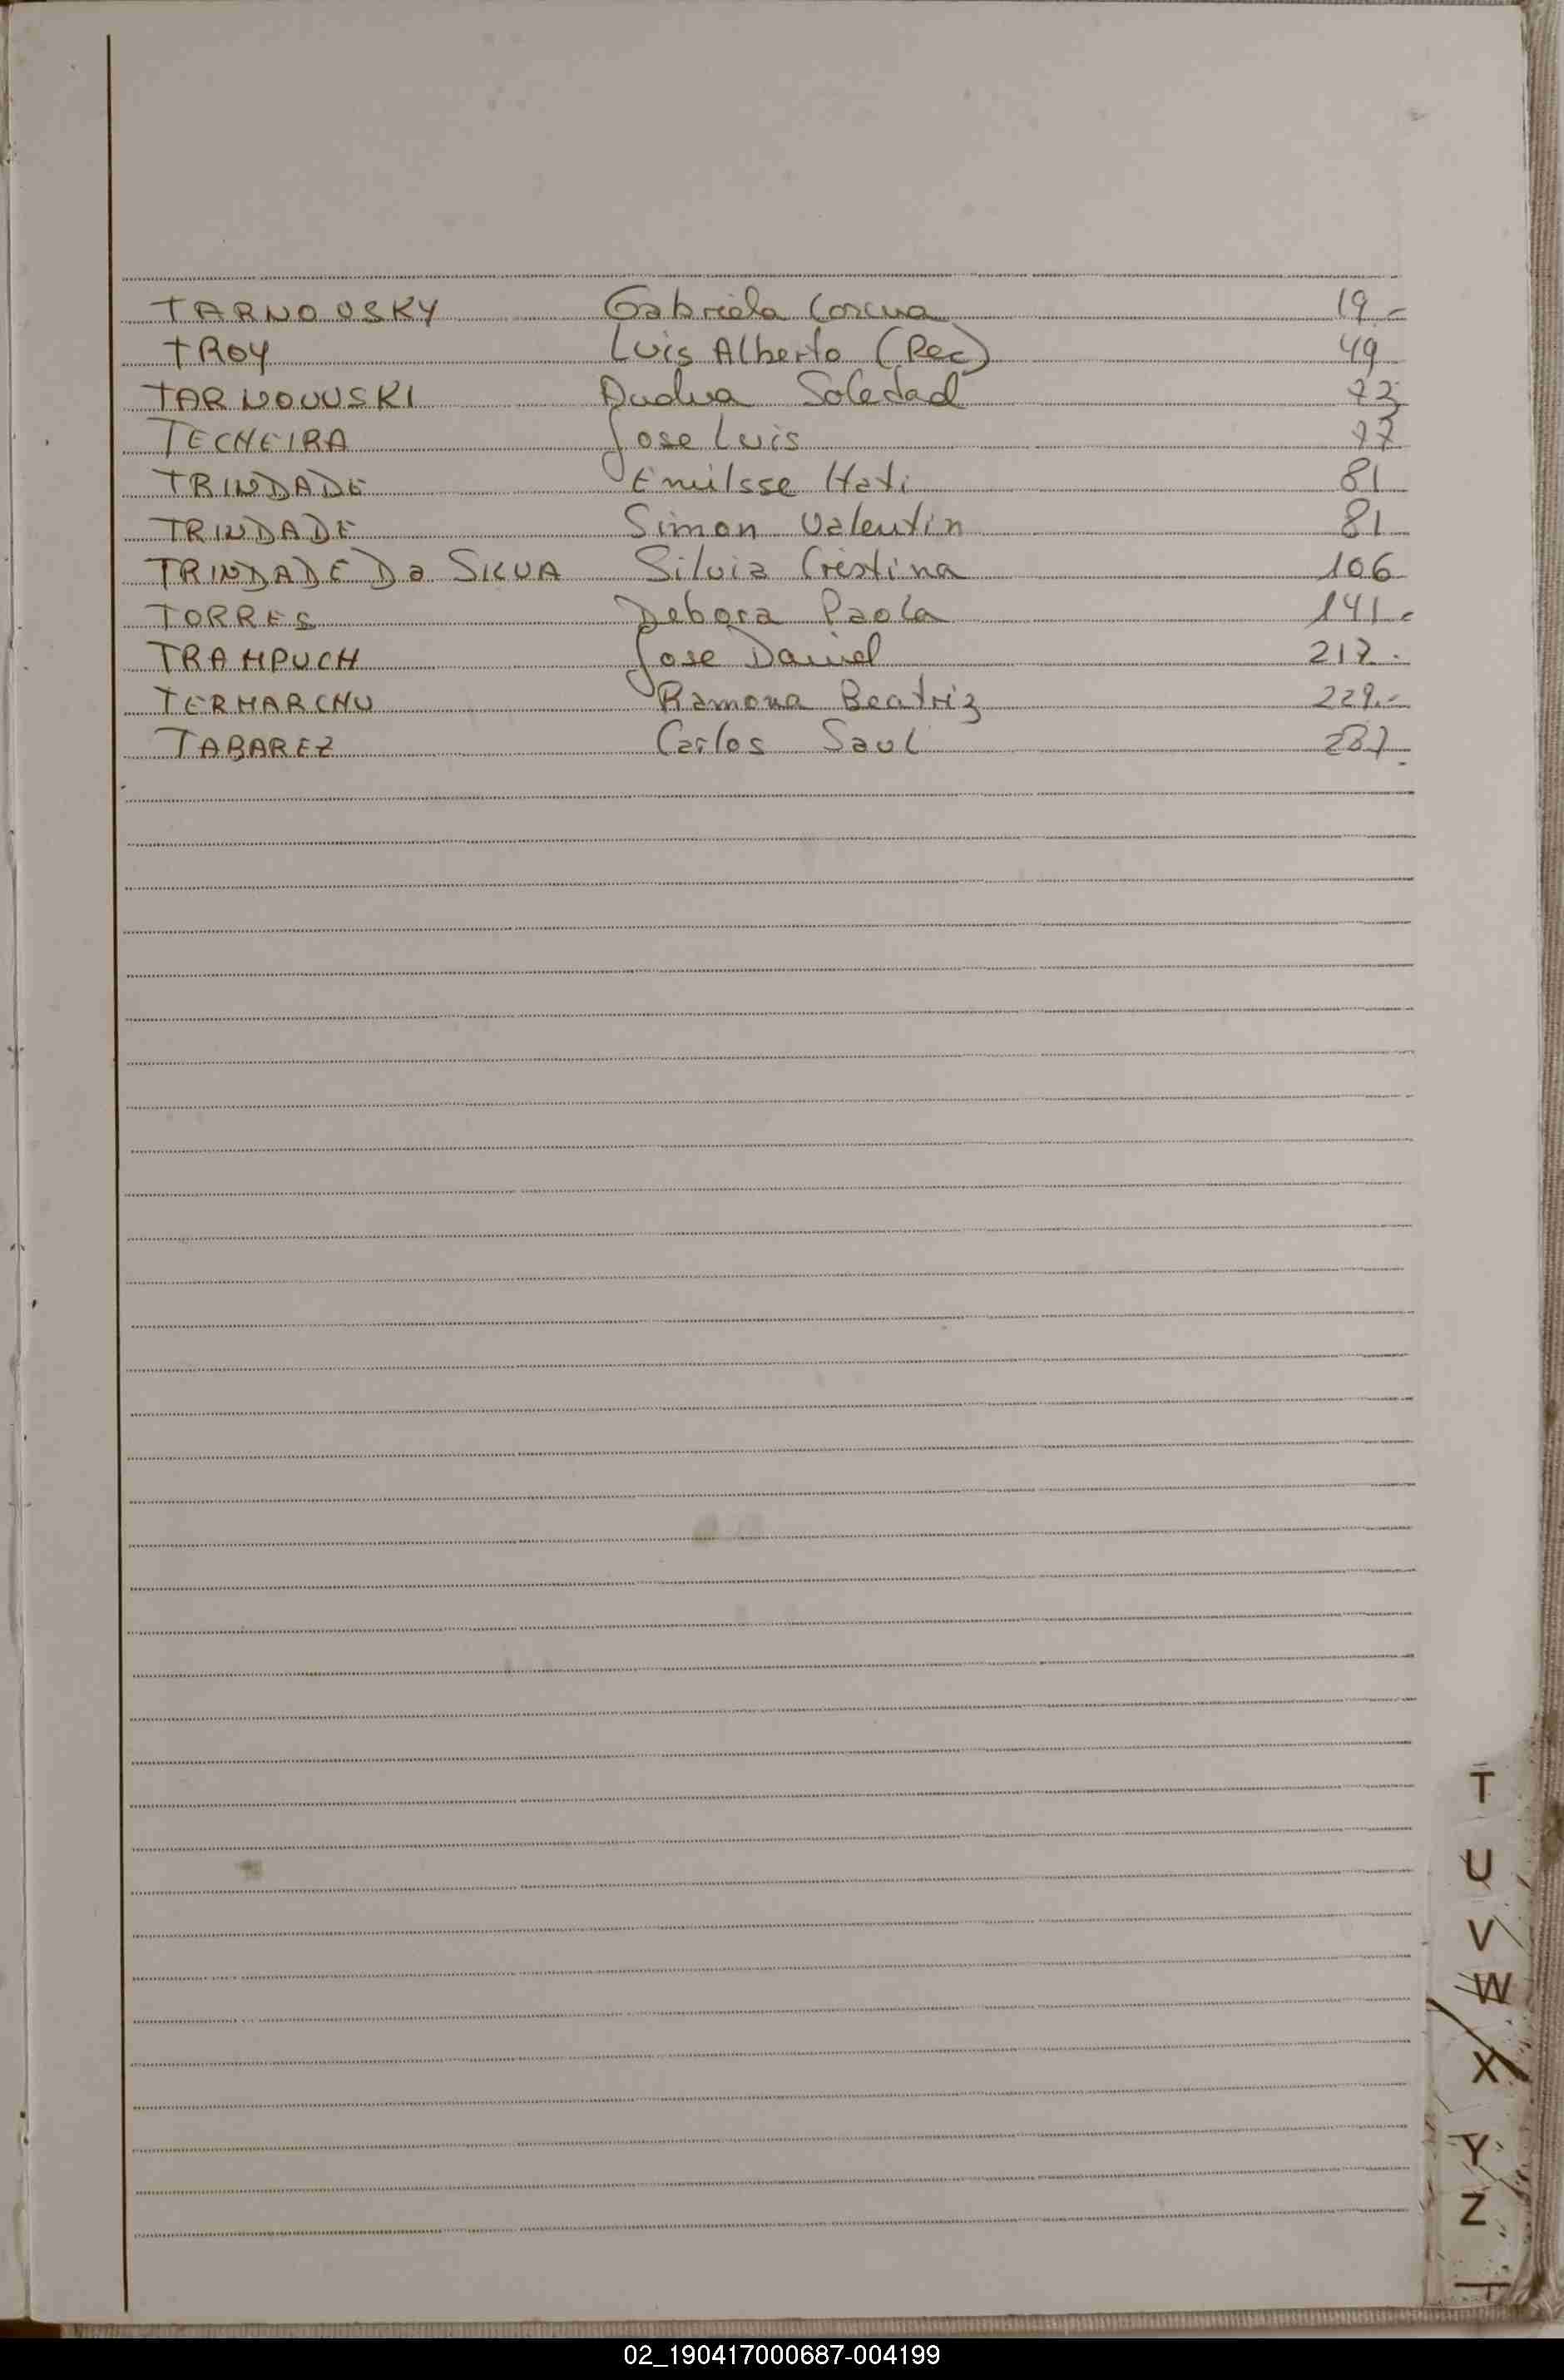 TARNOVSKY Gabriela Corina 19.-
TROY Luis Alberto (Rec) 49
TARNOWSKI Andrea Soledad 73
TECHEIRA Jose Luis 77
TRINDADE Emilsse Hati 81
TRINDADE Simon Valentin 81
TRINDADE Da SILVA Silvia Cristina 106
TORRES Debora Paola 141.-
TRAMPUCH Jose Daniel 217.-
TERMARCHU Ramona Beatriz 229.-
TABAREZ Carlos Saul 287.-
T
U
V
W
X
Y
Z
02_190417000687-004199